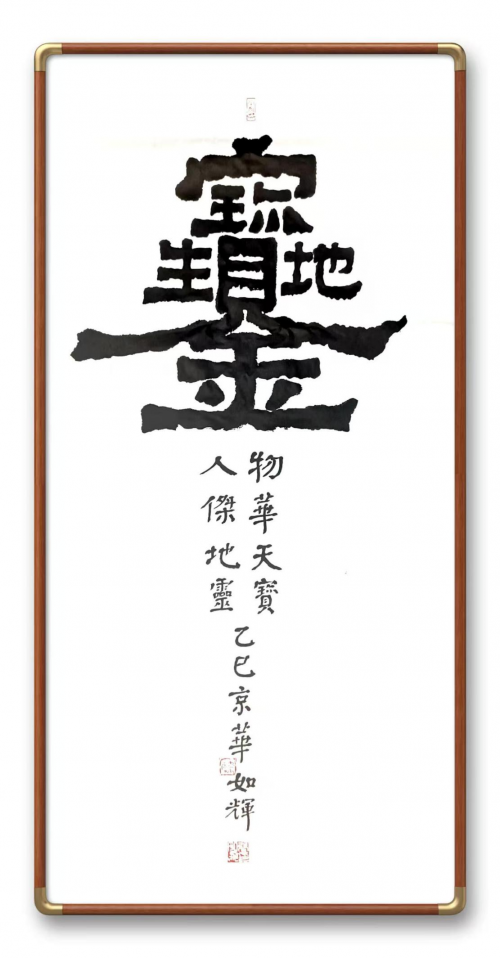 寶地生金
物華天寶
人傑地靈
乙巳京華如輝